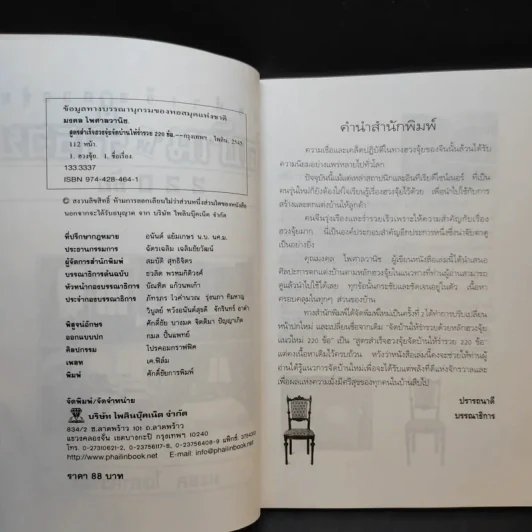 ข้อมูลทางบรรณานุกรมของหอสมุดแห่งชาติ
มงคล ไพศาลวานิช.
สูตรสำเร็จฮวงจุ้ยจัดบ้านให้ร่ำรวย 220 ข้อ.--กรุงเทพฯ : ไพลิน, 2545
112 หน้า.
1. ฮวงจุ้ย. I. ชื่อเรื่อง.
133.3337
ISBN 974-428-464-1
© สงวนลิขสิทธิ์ ห้ามการลอกเลียนไม่ว่าส่วนหนึ่งส่วนใดของหนังสือ
นอกจากจะได้รับอนุญาต จาก บริษัท ไพลินบุ๊คเน็ต จำกัด
ที่ปรึกษากฎหมาย อนันต์ แย้มเกษร น.บ. นศ.ม.
ประธานกรรมการ ฉัตรเฉลิม เฉลิมชัยวัฒน์
ผู้จัดการสำนักพิมพ์ สมบัติ สุทธิจิตร
บรรณาธิการต้นฉบับ ยวลิต พรหมกสิวงศ์
หัวหน้ากองบรรณาธิการ บัณฑิต แก้วพเก้า
ประจำกองบรรณาธิการ ภัทรภร ไวคำนวณ รุ่งนภา
วิบูลย์ หวังอนันต์สุขดี
พิสูจน์อักษร ศักดิ์ชัย
ออกแบบปก กมล ปั้นแพทย์
ศิลปกรรม โปรคอมกราฟฟิค
เพลท เค.ฟิล์ม
พิมพ์ ศักดิ์ชัยการพิมพ์
จัดพิมพ์/จัดจำหน่าย
บริษัท ไพลินบุ๊คเน็ต จำกัด
834/2 ซ.ลาดพร้าว 101 ถ.ลาดพร้าว
แขวงคลองจั่น เขตบางกะปิ กรุงเทพฯ 10240
โทร. 0-27310621-2, 0-23756117-8, 0-23756408-9 แฟ็กซ์.
http://www.phailinbook.net E-mail: info@phailinbook.net
ราคา 88 บาท
คำนำสำนักพิมพ์
ความเชื่อและเคล็ดปฏิบัติในทางฮวงจุ้ยของจีนนั้นล้วนได้รับ
ความนิยมอย่างแพร่หลายไปทั่วโลก
ปัจจุบันนี้แม้แต่หลายสถาปนิกและอินทีเรียดีไซน์เนอร์ ที่เป็น
คนรุ่นใหม่ก็ยังต้องใส่ใจเรียนรู้เรื่องฮวงจุ้ยไว้ด้วย เพื่อนำไปใช้กับการ
สร้างและตกแต่งบ้านให้ลูกค้า
คนจีนรุ่งเรืองและร่ำรวยเร็วเพราะให้ความสำคัญกับเรื่อง
ฮวงจุ้ยมาก นี่เป็นองค์ประกอบสำคัญอีกประการหนึ่งซึ่งน่าจับตาดู
เป็นอย่างยิ่ง
คุณมงคล ไพศาลวานิช ผู้เขียนหนังสือเล่มนี้ได้นำเสนอ
ศิลปะการตกแต่งบ้านตามหลักฮวงจุ้ยในแนวทางที่ท่านผู้อ่านสามารถ
ดูแล้วนำไปใช้ได้เลย ทุกข้อนั้นกระชับและชัดเจนอยู่ในตัว เนื้อหา
ครอบคลุมในทุกๆ ส่วนของบ้าน
ทางสำนักพิมพ์ได้จัดพิมพ์ใหม่เป็นครั้งที่ ๒ ได้ทำการปรับเปลี่ยน
หน้าปกใหม่ และเปลี่ยนชื่อจากเดิม "จัดบ้านให้ร่ำรวยด้วยหลักฮวงจุ้ย
แนวใหม่ 220 ข้อ" เป็น "สูตรสำเร็จฮวงจุ้ยจัดบ้านให้ร่ำรวย 220 ข้อ"
แต่คงเนื้อหาเดิมไว้ครบถ้วน หวังว่าหนังสือเล่มนี้คงจะช่วยให้ท่านผู้
อ่านได้รู้แนวการจัดบ้านใหม่เพื่อจะได้รับแต่พลังที่ดีแห่งจักรวาลและ
เพื่อผลแห่งความมั่งมีศรีสุขของทุกคนในบ้านสืบไป
ปรารถนาดี
บรรณาธิการ